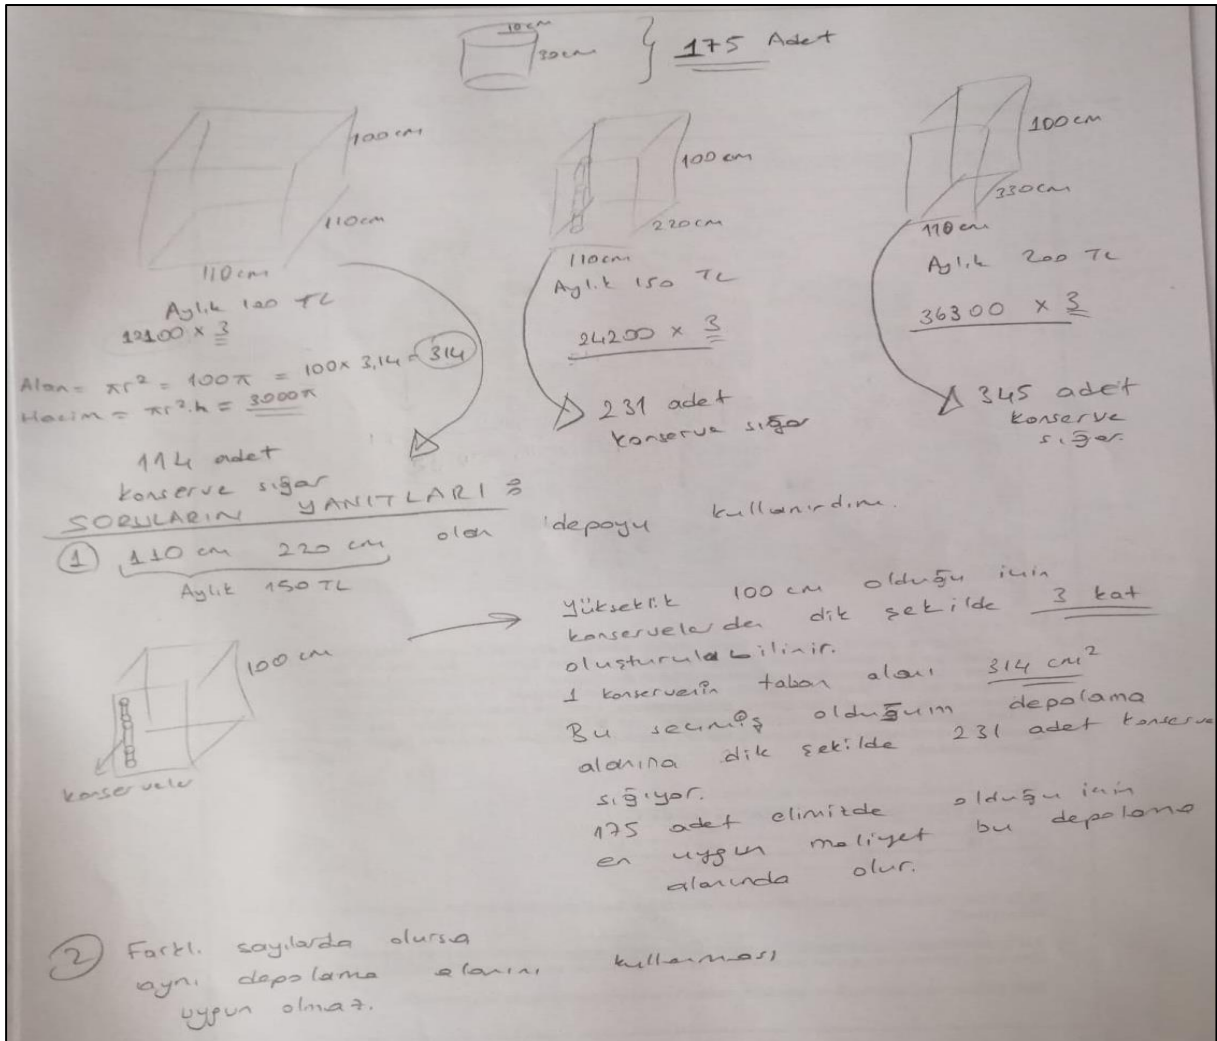 10cm
30cm
175 Adet
100 cm
110cm
110cm
Aylık 100 TL
12100 x 3
100 cm
220 cm
110cm
Aylık 150 TL
24200 x 3
100cm
330cm
110 cm
Aylık 200 TL
36300 x 3
Alan = πr² = 100π = 100x 3,14 = 314
Hacim = πr².h = 3000π
114 adet
konserve sığar
231 adet
konserve sığar
345 adet
konserve
sığar.
SORULARIN YANITLARI :
1 110 cm 220 cm olan depoyu kullanırdım.
Aylık 150 TL
100 cm
konserveler
Yükseklik 100 cm olduğu için
konservelerden dik şekilde 3 kat
oluşturulabilinir.
1 konservenin taban alanı 314 cm²
Bu seçmiş olduğum depolama
alanına dik şekilde 231 adet konserve
sığıyor.
175 adet elimizde olduğu için
en uygun maliyet bu depolama
alanında olur.
2 Farklı sayılarda olursa
aynı depolama alanını kullanması
uygun olmaz.